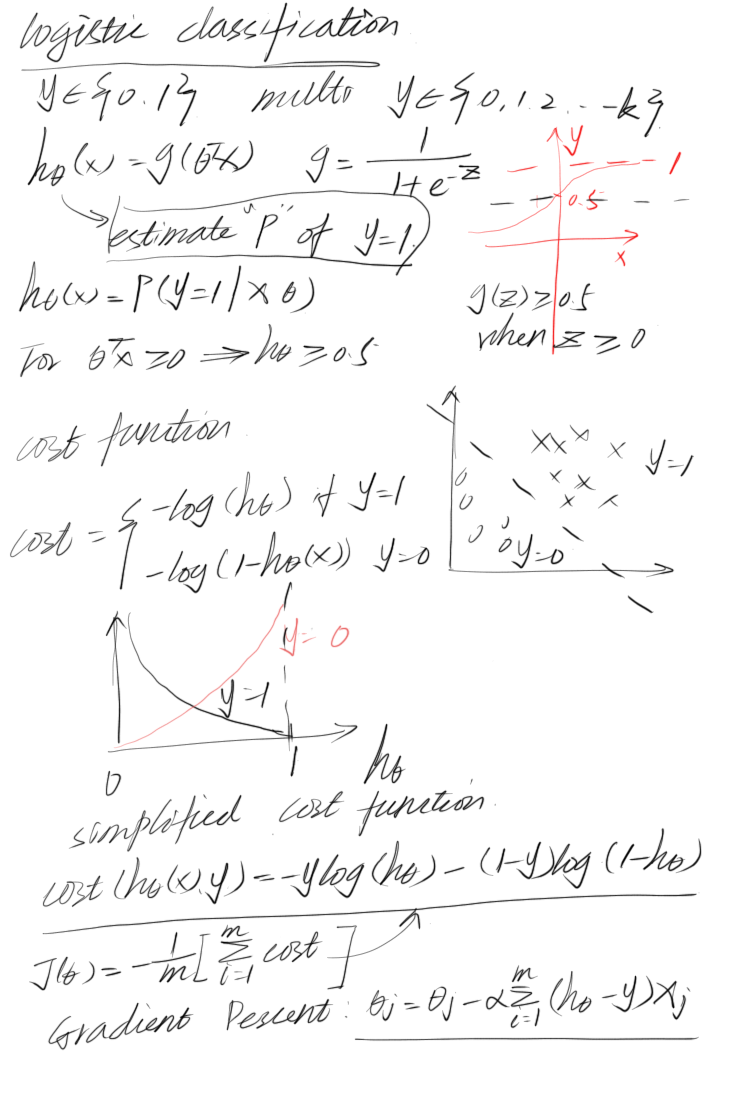 logistic classification
y∈{0.1} multi y∈{0,1 2 ..-k}
hθ(x)=g(θᵀx) g=1/(1+e^-z)
y
1
0.5
x
estimate "P" of y=1.
hθ(x)=P(y=1|x θ)
g(z)≥0.5
when z≥0
For θᵀx≥0 ⇒hθ≥0.5
cost function
y=1
y=0
cost = { -log(hθ) if y=1
-log(1-hθ(x)) y=0
y=0
y=1
0 1 hθ
simplified cost function.
cost(hθ(x),y)=-ylog(hθ)-(1-y)log(1-hθ)
J(θ)=-1/m[∑_{i=1}^{m} cost]
Gradient Descent: θj=θj-α∑_{i=1}^{m}(hθ-y)xj